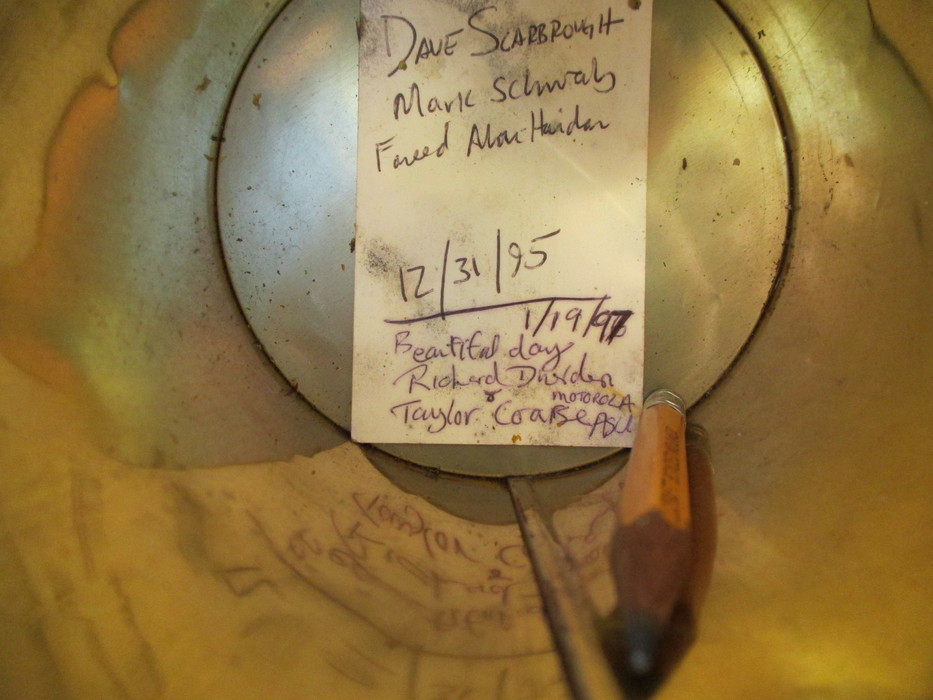 DAVE SCARBROUGH
Mark Schwab
Fareed
12/31/95
1/19/97
Beautiful day
Richard
&
Taylor Coarse
MOTOROLA
ASU